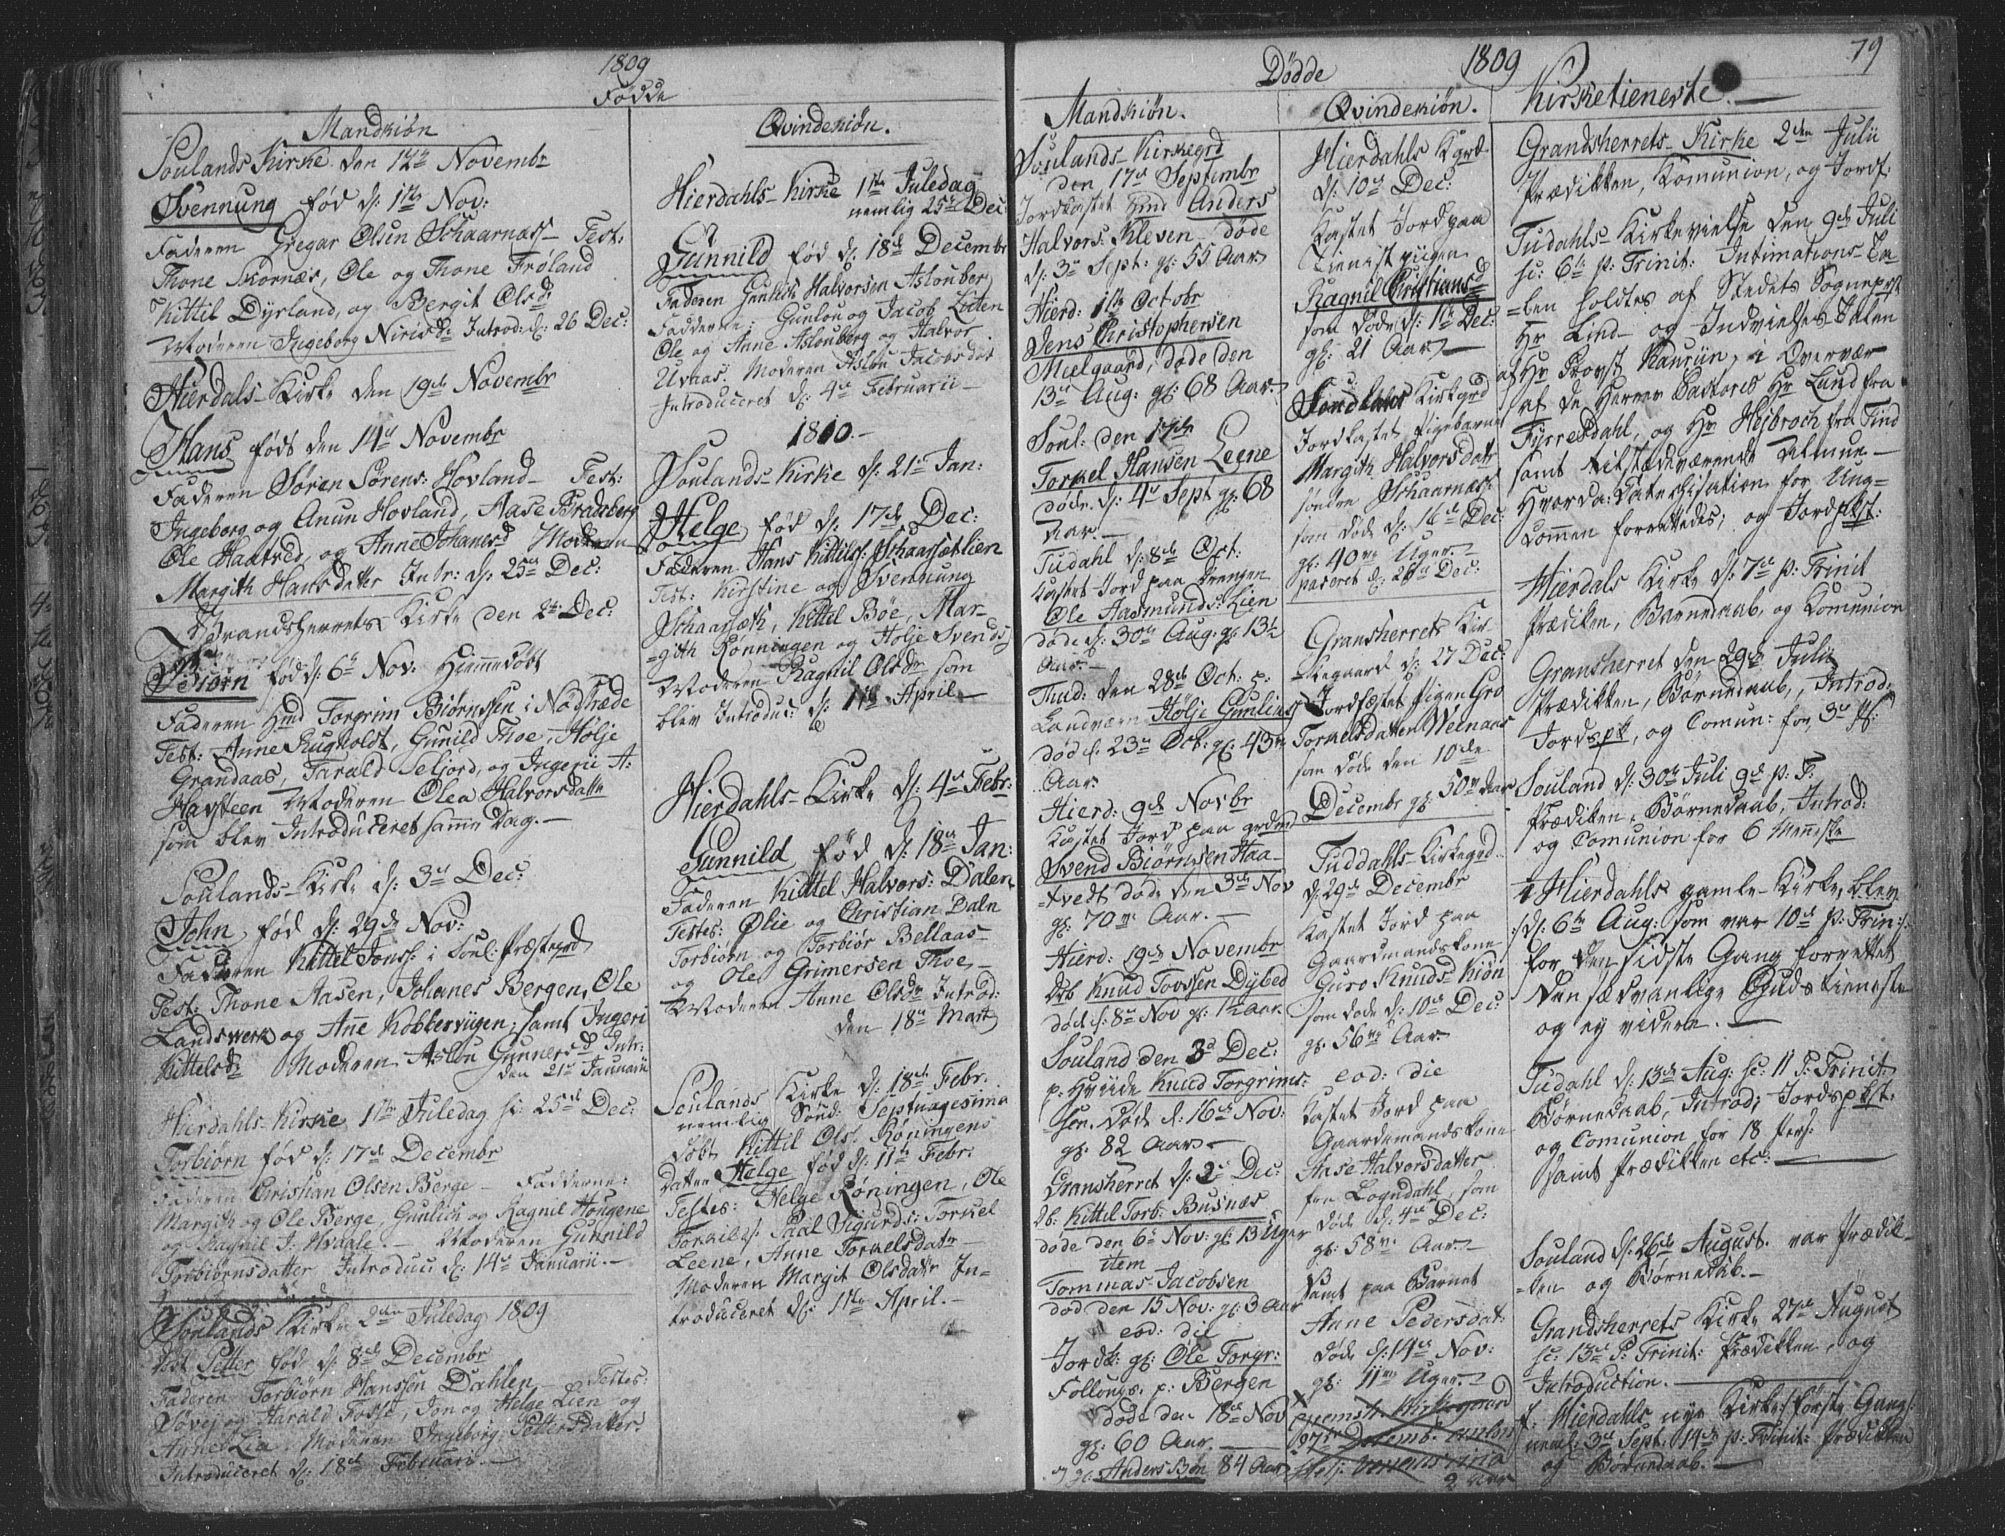 1809
Fødde
Mandkiøn
Soulands Kirke den 12te Novembr
Svennung fød d: 1te Nov:
Faderen Gregar Olsen Schaarnæss Test:
Thone Skornæs, Ole og Thone Frøland
Kittil Dyrland, og Bergit Olsd:
Moderen Ingeborg Introd: d: 26 Dec:
Hierdals-Kirke den 19de Novembr
Hans født den 14d Novembr
Faderen Søren Sørens: Hovland Test:
Ingeborg og Anun Hovland, Aase Bradeberg
Ole Haatved, og Anne Johanesd Moderen
Margith Hansdatter Intr: d: 25de Dec:
Grandsherrets Kirke den 2de Dec:
Biørn fød d: 6te Nov: Hiemmedøbt
Faderen Hmd Torgrim Biørnssen i Nodstræde
Test: Anne Rugholdt, Gunild Thoe, Hølje
Grandaas, Tarald Seljord, og Ingerii A:
Havsteen Moderen Olea Halvorsdatter
som blev Introduceret samme Dag.
Soulands-Kirke d: 3de Dec:
John fød d: 29de Nov:
Faderen Kittel Jonss: i Soul: Præstegrd
Test: Thone Aasen, Johanes Bergen, Ole
Landswerk og Anne Kobbervigen; samt Ingeri
Kittelsd: Moderen Aslou Gunnersd Intr:
den 21de Januarii
Hierdahls-Kirke 1te Juledag sc: 25de Dec:
Torbiørn fød d: 17de Decembr
Faderen Christian Olsen Berge Fadderne:
Margith og Ole Berge, Gunlich og Ragnil Hongene
og Ragnil J: Moderen Gunnild
Torbiørnsdatter Introduc: d: 14de Januarii.
Soulands Kirke 2den Juledag 1809
døbt Petter fød d: 8de Decembr
Faderen Torbiørn Hanssøn Dahlen Testes:
Søvej og Harald Fosse, Jon og Helge Lien og
Anne Lia. Moderen Ingeborg Pettersdatter.
Introduceret d: 18de Februari.
Qvindekiøn.
Hierdahls-Kirke 1te Juledag
nemlig 25de Dec
Gunnild fød d: 18de Decembr
Faderen Gunlich Halvorsen Aslonberg
Fadderne; Gunlou og Jacob Lien
Ole og Anne Aslonberg og Halvor
Uvaas. Moderen Aslou Jacobsdtr
Introduceret d: 4de Februarii
1810.
Soulands-Kirke d: 21de Jan:
Helge fød d: 17de Dec:
Faderen Hans Kittils: Schaarsætlien
Test: Kirstine og Svennung
Schaarsæth, Kittel Bøe, Mar-
=gith Rønningen og Holje Svends
Moderen Ragnil Olsdr som
blev Introduc: d: 11te April
Hierdahls-Kirke d: 4de Febr:
Gunnild fød d: 18de Jan:
Faderen Kittel Halvors: Dalen
Testes: Olie og Christian Daln
Torbiorn og Torbiør Bellaas
og Ole Grimersen Thoe
Moderen Anne Olsdr Introd:
den 18de Mart
Soulands Kirke d: 18de Febr.
nemlig Sønd: Septuagesima
døbt Kittil Ols: Røningens
Datter Helge fød d: 11te Febr:
Testes: Helge Røningen, Ole
Torkilss: Paal Sigurds: Torkel
Leene, Anne Torkelsdatr
Moderen Margit Olsdatr In-
troduceret d: 1te April.
Dødde 1809
79
Mandkiøn.
Soulands-Kirkegrd
den 17de Septembr
Jordkastet Hmd Anders
Halvors: Kleven døde
d: 3de Sept: gl: 55 Aar
Hierd: 1ste Octobr
Jens Christophersen
Mielgaard, døde den
13de Aug: gl: 68 Aar.
Soul: den 17de
Torkel Hansen Leene
døde d: 4de Sept gl: 68
Aar.
Tudahl d: 8de Oct:
Kastet Jord paa Drengen
Ole Aasmunds: Lien
døde d: 30te Aug: gl: 13½
Aar.
Thud: den 28de Oct: p:
Landværn Hølje Gunlics
død d: 23de Oct: gl: 43
Aar
Hierd: 9de Novbr
Kastet Jord paa grdmd
Svend Biørnsen Haa-
=tvedt død den 3de Nov
gl: 70 Aar.
Hierd: 19de Novembr
Db Knud Tovssen Dybed
død d: 8de Nov gl: 1½ Aar.
Souland den 3d Dec:
p: Hviide Knud Torgrims:
sen. Død d: 16de Nov:
gl: 82 Aar
Gransherret d: 2de Dec:
Db: Kittel Torb: Busnæs
døde den 6te Nov: gl: 13 Uger
item
Tommas Jacobsen
død den 15 Nov: gl: 3 Aar
eod: die
Jordk: gl: Ole Torgr:
Follongs: p: Bergen
døde den 18de Nov
gl: 60 Aar.
Anders Bøn 84 Aar
Qvindekiøn.
Hierdahls Kgrd
d: 10de Dec:
Kastet Jord paa
Tienistpiigen
Ragnil Cristiansd
som døde d: 1te Dec:
gl: 21 Aar
Soudlans Kirkegrd
Jordkastet Pigebarnet
Margith Halvorsdatr
søndre Schaarnæs:
som døde d: 16de Dec:
gl: 40 Uger.
d: 26de Dec:
Gransherrets Kir
kegaard d: 27 Dec:
Jordfæstet Pigen Gro
Torkelsdatter Weenaas
som døde den 10de
Decembr gl: 50 Aar
Tuddahls-Kirkegrd
d: 29de Decembr
Kastet Jord paa
Gaardmandskone
Guro Knuds Kiøn
som døde d: 10de Dec:
gl: 56 Aar.
eod: die
Kastet Jord paa
Gaardemandskone
Anse Halvorsdatter
fra Bogndahl, som
døde d: 4de Dec:
gl: 58 Aar.
Samt paa Barnet
Anne Pedersdat:
døde d: 14de Nov:
gl: 11 Uger.
2 Aar
Kirketieneste.
Grandsherrets-Kirke 2den Julii
Prædikken, Komunion, og Jordf:
Tudahls Kirkevielse den 9de Juli
sc: 6te p: Trinit: Intimations-Ta
=len holdtes af Stedets Sogneprst
Hr Lind og Indvielses Talen
af Hr Provst Kauriin, i Overvær
af de Herrer Pastores Hr Lund fra
Fyrresdahl, og Hr Hejbroch fra Tind
samt tilstædeværende Almue
Hvorda: Catechisation for Ung-
dommen forrettedes, og Jordpkst:
Hierdals Kirke d: 7de p: Trinit
Prædiken, Barnedaab, og Komunion
Gransherret den 29de Julii
Prædikken, Børnedaab, Introd:
Jordspk, og Comun: for 3de Ps:
Souland d: 30te Juli 9de p: T:
Prædiken, Børnedaab, Introd:
og Comunion for 6 Menneske
Hierdahls gamle Kirke, blev
d: 6te Aug: som var 10de p: Trin:
for den sidste Gang forrettet
den sædvanlige Gudstieneste
og ej videre.
Tudahl d: 13de Aug: sc: 11 p: Trinit:
Børnedaab, Introd; Jordspkst:
og Comunion for 18 Pers:
samt Prædikken etc:
Souland d: 26de August. var Prædik-
=ken og Børnedaab.
Grandsherrets Kirke 27de August
sc: 13de P: Trinit: Prædikken, og
Introduction.
Hierdahls nye Kirke: første Gang
neml: 3de Sept: 14de p: Trinit: Prædikken
og Børnedaab.